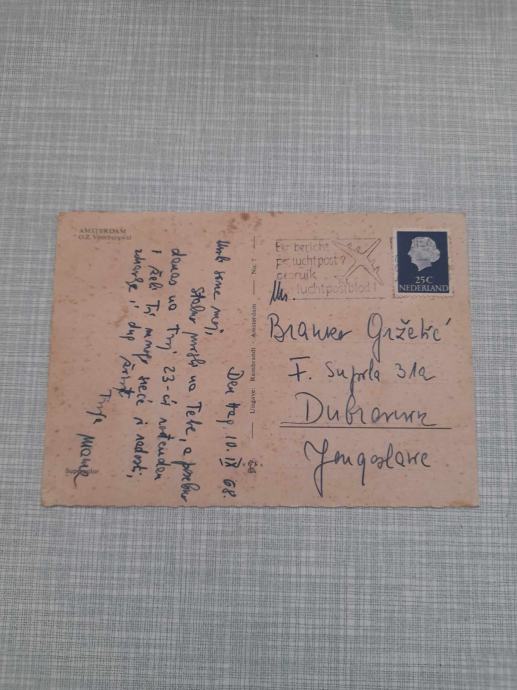 AMSTERDAM
O.Z. Voorburgwal
Den Haag 10. IX 68.
sine moj,
Stalno mislim na Tebe, a posebno
danas na Tvoj 23-ći rođendan
i želi Ti mnogo sreće i radosti,
zdravlje i dug život
Tvoja Mama
Uitgave: Rembrandt - Amsterdam No. 7
Een bericht
per luchtpost?
gebruik
luchtpostblad!
25C
NEDERLAND
Branko Gržetić
F. Supila 31a
Dubrovnik
Jougoslavie